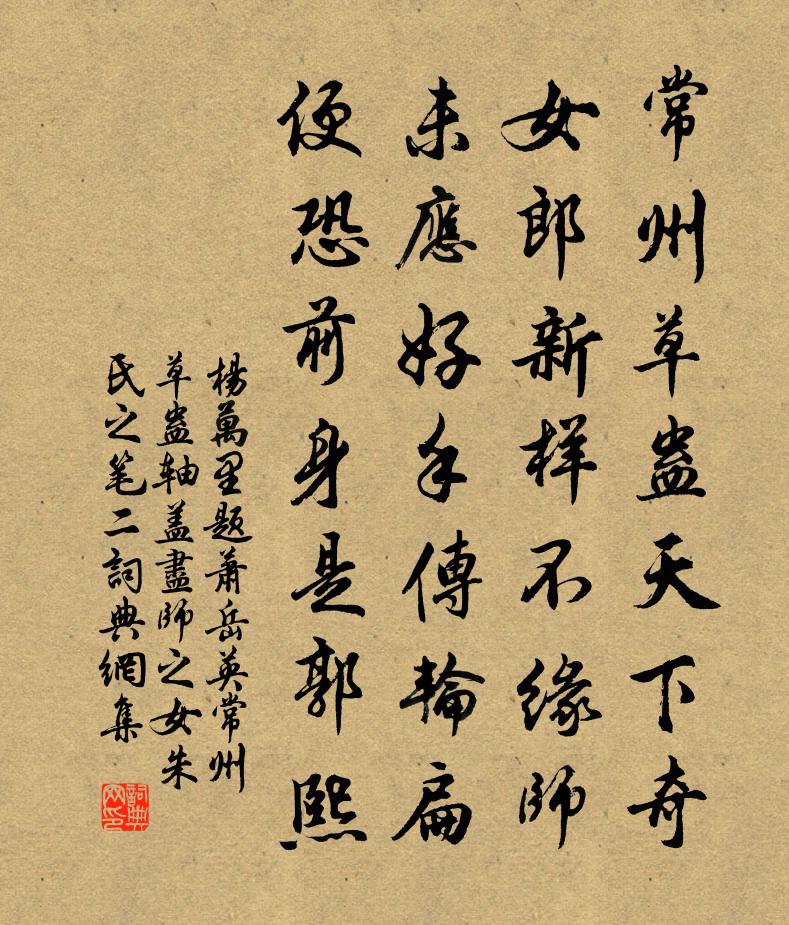 常州草蟲天下奇
女郎新样不緣師
未應好手傳輪扁
便恐前身是郭熙
楊萬里题蕭岳英常州
草蟲轴盖畫師之女朱
氏之笔二詞典網集
詞典网印